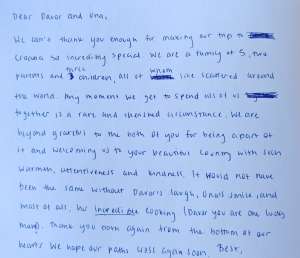 Dear Davor and Una,
We can't thank you enough for making our trip to
Croatia so incredibly special. We are a family of 5, two
parents and three children, all of whom live scattered around
the world. Any moment we get to spend all of us
together is a rare and cherished circumstance. We are
beyond grateful to the both of you for being a part of
it and welcoming us to your beautiful country with such
warmth, attentiveness and kindness. It would not have
been the same without Davor's laugh, Una's smile, and
most of all, her incredible cooking (Davor you are one lucky
man). Thank you both again from the bottom of our
hearts. We hope our paths cross again soon. Best,